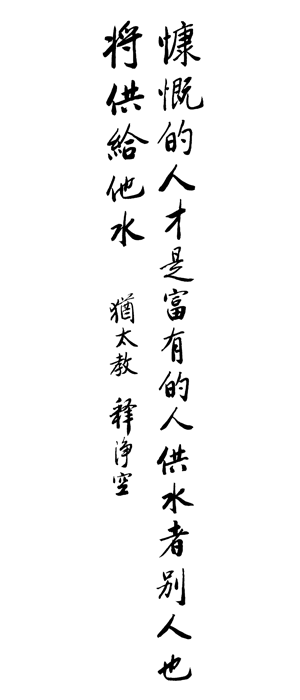 慷慨的人才是富有的人供水者别人也
将供給他水
猶太教 释淨空